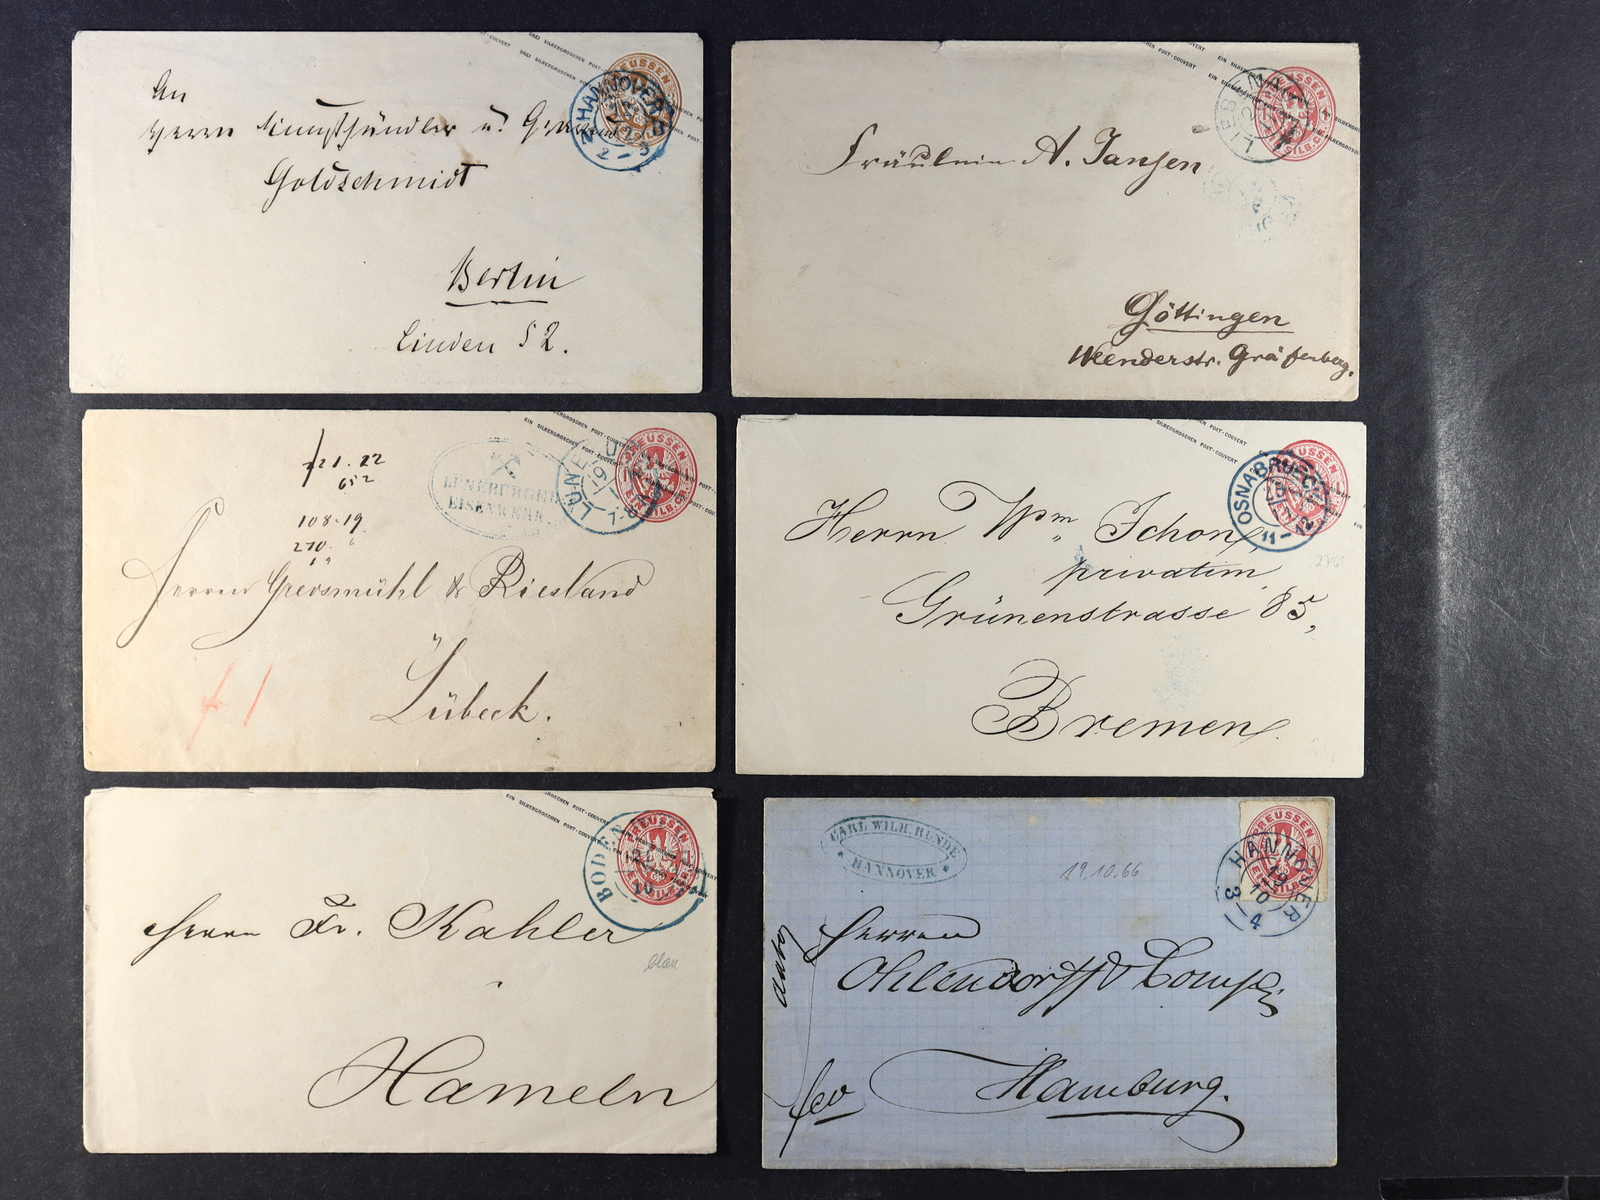 An
Herrn Kunsthändler u.
Goldschmidt
Berlin
Linden 52.
DREI SILBERGROSCHEN POST-COUVERT
PREUSSEN
HANNOVER
2-3
Fräulein A. Jansen
Göttingen
Weenderstr. Gräfenberg.
EIN SILBERGROSCHEN POST-COUVERT
PREUSSEN
EIN SILB.GR.
721.22
652
108.19
270. 6
LÜNEBURGER
EISENWERK
Herren Grevsmühl & Riesland
Lübeck.
EIN SILBERGROSCHEN POST-COUVERT
PREUSSEN
EIN SILB.GR.
Herrn Wm Schon,
privatim
Grünenstrasse 85,
Bremen.
SILBERGROSCHEN POST-COUVERT
OSNABRUECK
11-12
Herrn Fr. Kahler
blau
Hameln
EIN SILBERGROSCHEN POST-COUVERT
PREUSSEN
BODEN
CARL WILH. RUNDE
HANNOVER
19.10.66
PREUSSEN
HANNOVER
19
10
3-4
Herren
Ohlendorff & Comp.
Hamburg.